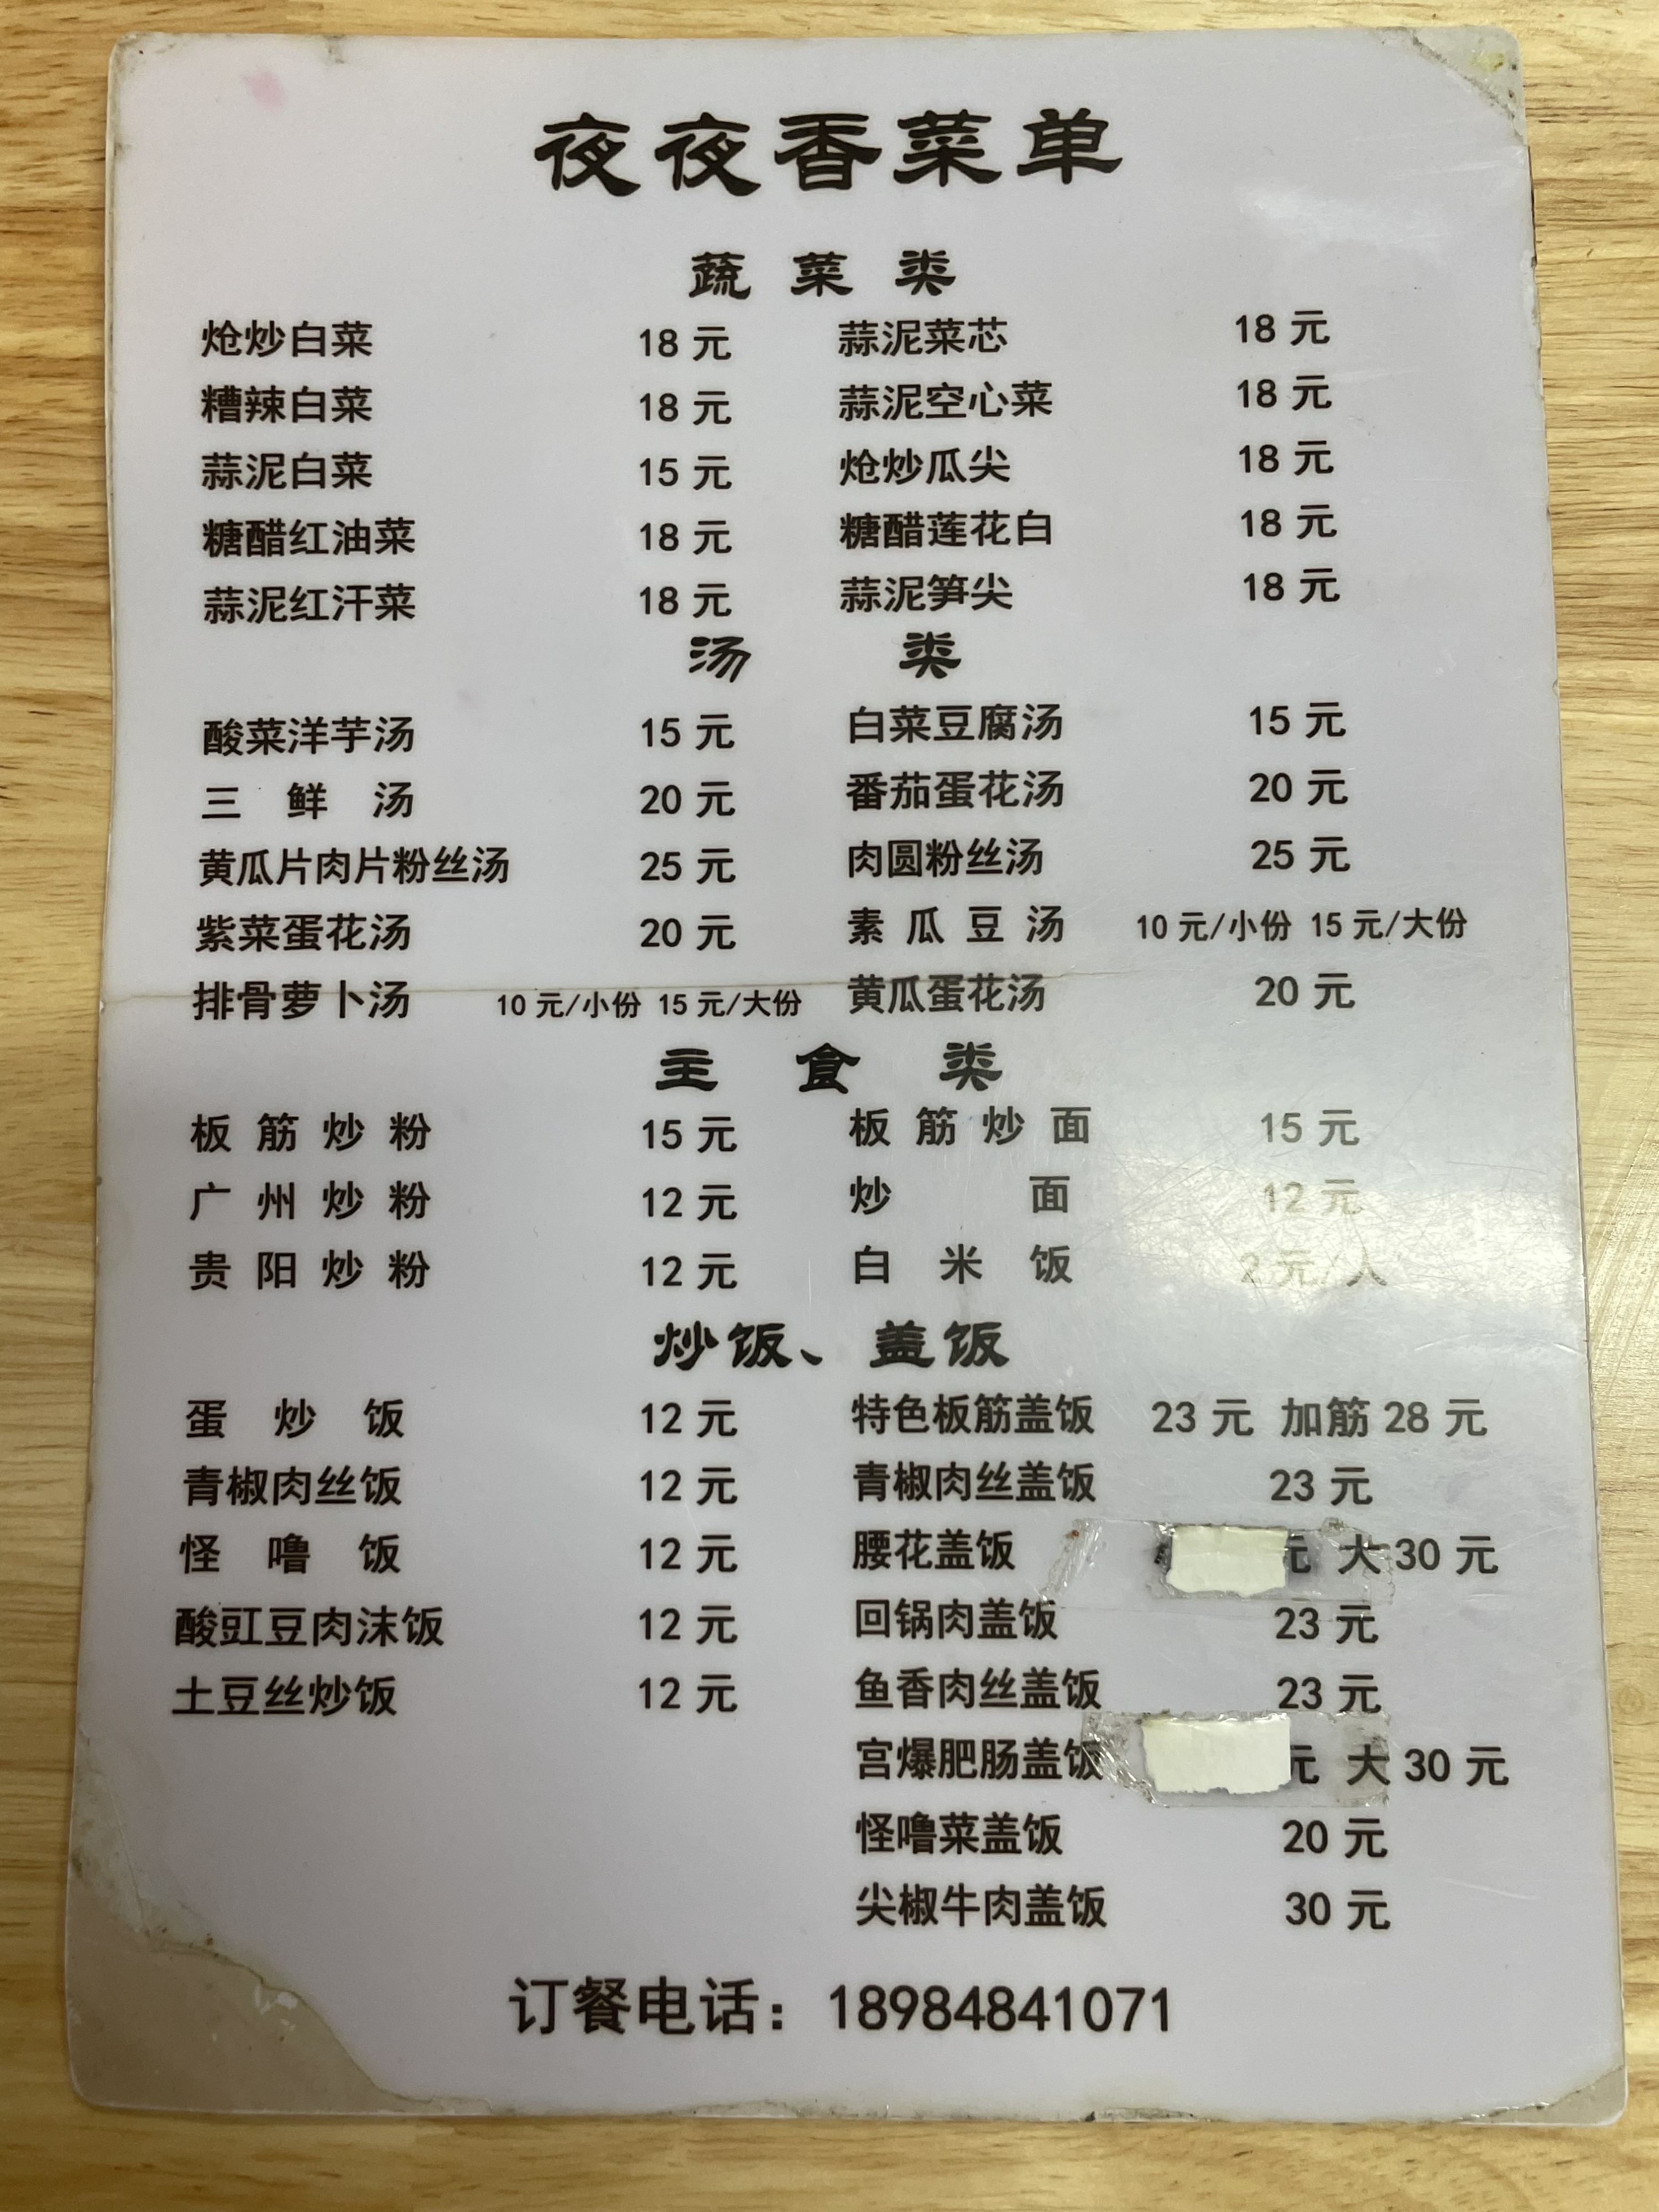 夜夜香菜单
蔬菜类
炝炒白菜 18元 蒜泥菜芯 18元
糟辣白菜 18元 蒜泥空心菜 18元
蒜泥白菜 15元 炝炒瓜尖 18元
糖醋红油菜 18元 糖醋莲花白 18元
蒜泥红汗菜 18元 蒜泥笋尖 18元
汤类
酸菜洋芋汤 15元 白菜豆腐汤 15元
三鲜汤 20元 番茄蛋花汤 20元
黄瓜片肉片粉丝汤 25元 肉圆粉丝汤 25元
紫菜蛋花汤 20元 素瓜豆汤 10元/小份 15元/大份
排骨萝卜汤 10元/小份 15元/大份 黄瓜蛋花汤 20元
主食类
板筋炒粉 15元 板筋炒面 15元
广州炒粉 12元 炒面 12元
贵阳炒粉 12元 白米饭 2元/人
炒饭、盖饭
蛋炒饭 12元 特色板筋盖饭 23元 加筋28元
青椒肉丝饭 12元 青椒肉丝盖饭 23元
怪噜饭 12元 腰花盖饭 元 大30元
酸豇豆肉沫饭 12元 回锅肉盖饭 23元
土豆丝炒饭 12元 鱼香肉丝盖饭 23元
宫爆肥肠盖饭 元 大30元
怪噜菜盖饭 20元
尖椒牛肉盖饭 30元
订餐电话：18984841071